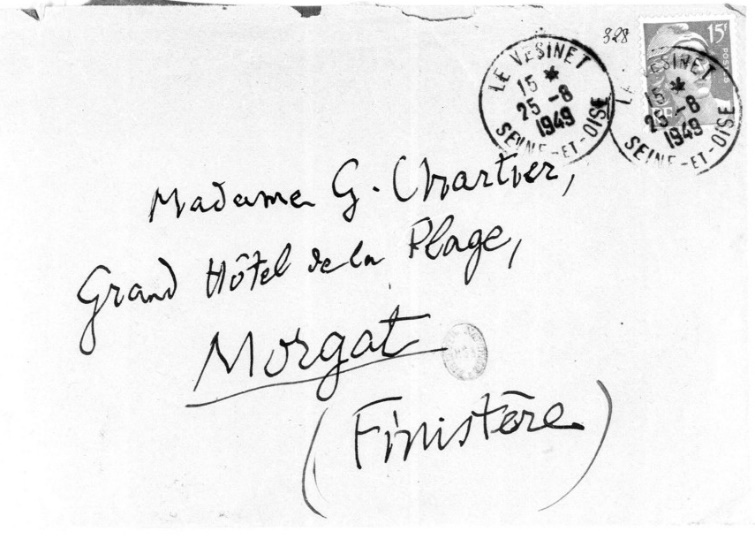 328
15F
LE VESINET
15 *
25 -8
1949
SEINE-ET-OISE
LE VESINET
15 *
25 -8
1949
SEINE-ET-OISE
Madame G. Chartier,
Grand Hôtel de la Plage,
Morgat
(Finistère)